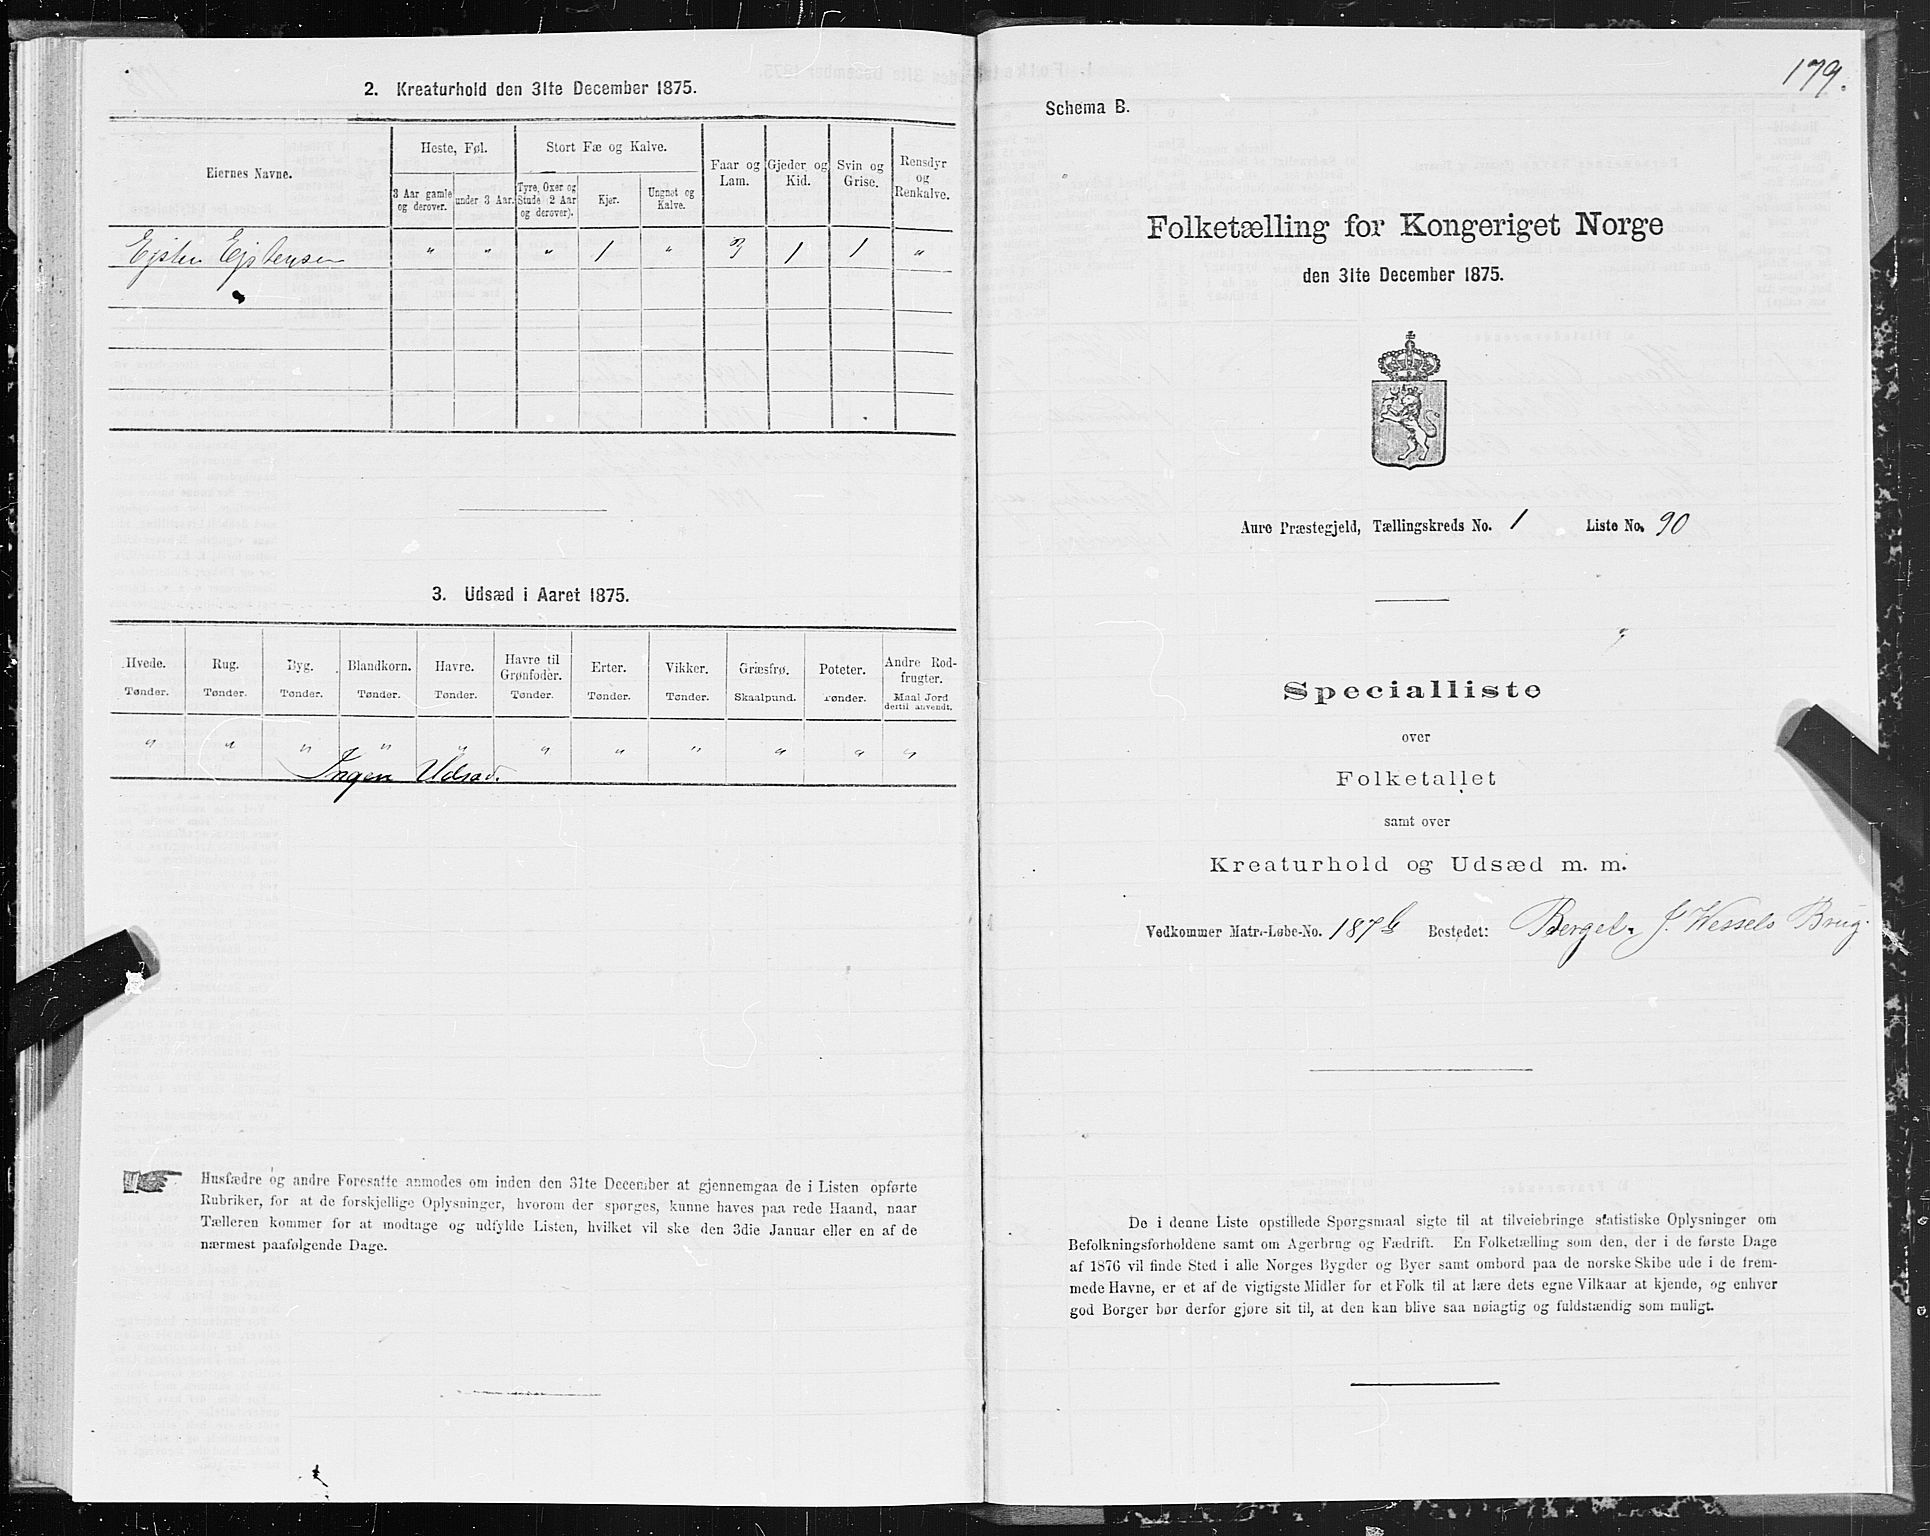 2. Kreaturhold den 31te December 1875.
Eiernes Navne.
Heste, Føl.
Stort Fæ og Kalve.
Faar og Lam.
Gjeder og Kid.
Svin og Grise.
Rensdyr og Renkalve.
3 Aar gamle og derover.
under 3 Aar.
Tyre, Oxer og Stude (2 Aar og derover).
Kjer.
Ungnøt og Kalve.
Ejsten Ejstensen " " " 1 " 3 1 1 "
3. Udsæd i Aaret 1875.
Hvede. Rug. Byg. Blandkorn. Havre. Havre til Grønfoder. Erter. Vikker. Græsfrø. Poteter. Andre Rodfrugter.
Tønder. Tønder. Tønder. Tønder. Tønder. Tønder. Tønder. Tønder. Skaalpund. Tønder. Maal Jord dertil anvendt.
" " " " " " " " " " "
Ingen Udsæd.
Husfædre og andre Foresatte anmodes om inden den 31te December at gjennemgaa de i Listen opførte
Rubriker, for at de forskjellige Oplysninger, hvorom der spørges, kunne haves paa rede Haand, naar
Tælleren kommer for at modtage og udfylde Listen, hvilket vil ske den 3die Januar eller en af de
nærmest paafølgende Dage.
179.
Schema B.
Folketælling for Kongeriget Norge
den 31te December 1875.
Aure Præstegjeld, Tællingskreds No. 1 Liste No. 90
Specialliste
over
Folketallet
samt over
Kreaturhold og Udsæd m. m.
Vedkommer Matr.-Løbe-No. 187b Bostedet: Berget J. Wessels Brug.
De i denne Liste opstillede Spørgsmaal sigte til at tilveiebringe statistiske Oplysninger om
Befolkningsforholdene samt om Agerbrug og Fædrift. En Folketælling som den, der i de første Dage
af 1876 vil finde Sted i alle Norges Bygder og Byer samt ombord paa de norske Skibe ude i de frem-
mede Havne, er et af de vigtigste Midler for et Folk til at lære dets egne Vilkaar at kjende, og enhver
god Borger bør derfor gjøre sit til, at den kan blive saa nøiagtig og fuldstændig som muligt.